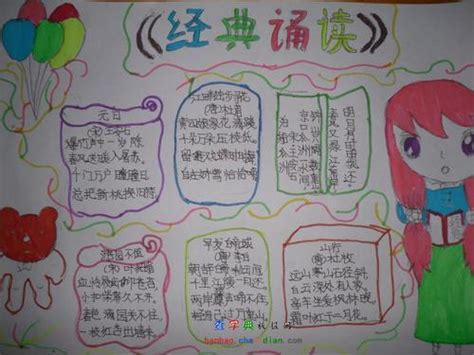 《经典诵读》
元日
(宋)王安石
爆竹声中一岁除
春风送暖入屠苏
千门万户曈曈日
总把新桃换旧符
江畔独步寻花
(唐)杜甫
黄四娘家花满蹊
千朵万朵压枝低
留连戏蝶时时舞
自在娇莺恰恰啼
游园不值
(宋)叶绍翁
小扣柴扉久不开
春色满园关不住
一枝红杏出墙来
早发白帝城
(唐)李白
朝辞白帝彩云间
千里江陵一日还
两岸猿声啼不住
轻舟已过万重山
山行
(唐)杜牧
远上寒山石径斜
白云深处有人家
停车坐爱枫林晚
霜叶红于二月花
查字典